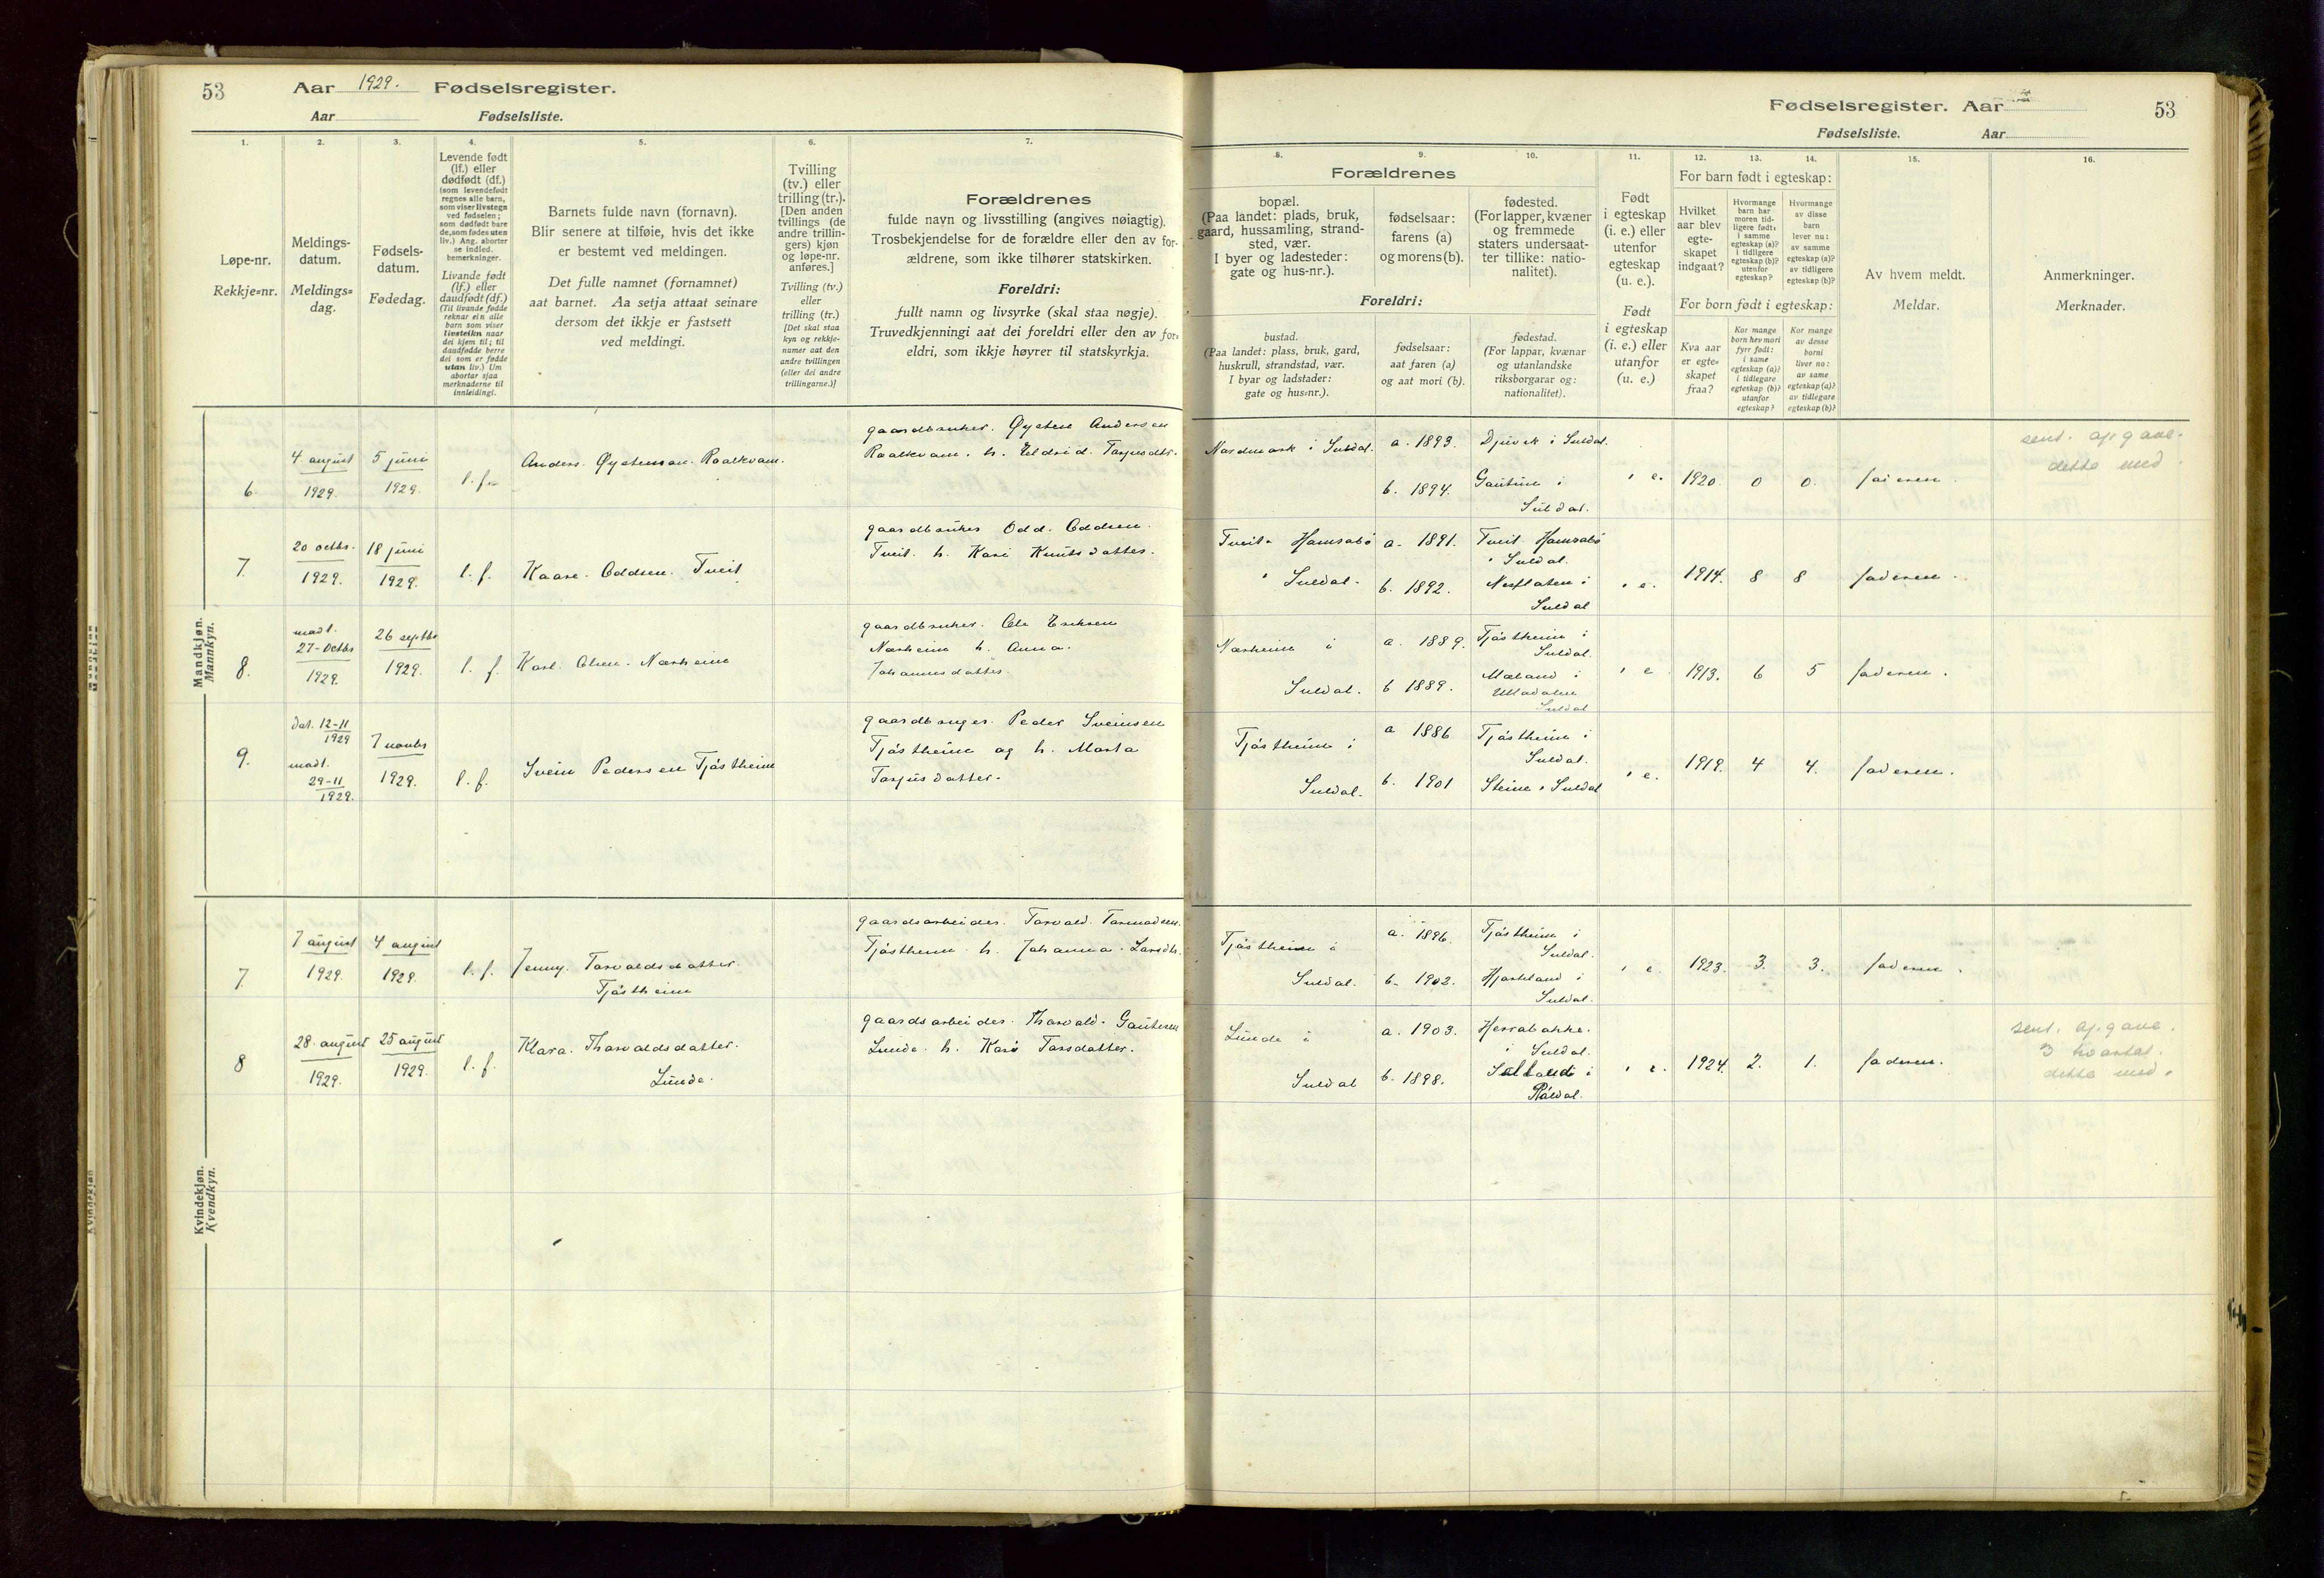 53 Aar 1929. Fødselsregister.
Aar Fødselsliste.
1. 2. 3. 4. 5. 6. 7.
Løpe-nr.
Rekkje=nr.
Meldings-
datum.
Meldings=
dag.
Fødsels-
datum.
Fødedag.
Levende født
(lf.) eller
dødfødt (df.)
(som levendefødt
regnes alle barn,
som viser livstegn
ved fødselen;
som dødfødt bare
de, som fødes uten
liv.) Ang. aborter
se indled.
bemerkninger.
Livande født
(lf.) eller
daudfødt (df.)
(Til livande fødde
reknar ein alle
born som viser
livsteikn naar
dei kjem til; til
daudfødde berre
dei som er fødde
utan liv.) Um
abortar sjaa
merknaderne til
innleidingi.
Barnets fulde navn (fornavn).
Blir senere at tilføie, hvis det ikke
er bestemt ved meldingen.
Det fulle namnet (fornamnet)
aat barnet. Aa setja attaat seinare
dersom det ikkje er fastsett
ved meldingi.
Tvilling
(tv.) eller
trilling (tr.).
[Den anden
tvillings (de
andre trillin-
gers) kjøn
og løpe-nr.
anføres.]
Tvilling (tv.)
eller
trilling (tr.)
[Det skal staa
kyn og rekkje-
numer aat den
andre tvillingen
(eller dei andre
trillingarne.)]
Forældrenes
fulde navn og livsstilling (angives nøiagtig).
Trosbekjendelse for de forældre eller den av for-
ældrene, som ikke tilhører statskirken.
Foreldri:
fullt namn og livsyrke (skal staa nøgje).
Truvedkjenningi aat dei foreldri eller den av for=
eldri, som ikkje høyrer til statskyrkja.
Mandkjøn.
Mannkyn.
6. 4. august 1929. 5 juni 1929. l. f. Anders. Øystensen. Roalkvam.
gaardbruker. Øysten Andersen
Roalkvam. h. Eldrid. Tarjeisdtr.
7. 20 octbr. 1929. 18 juni 1929. l. f. Kaare. Oddsen. Tveit
gaardbruker Odd. Oddsen.
Tveit. h. Kari Knutsdatter.
8. madl. 27-octbr 1929. 26 septbr 1929. l. f. Karl. Olsen. Nærheim
gaardbruker. Ole Eriksen
Nærheim h. Anna.
Johannesdatter.
9. dat. 12-11 1929 madl. 29-11 1929. 7 novbr 1929. l. f. Svein Pedersen Tjøstheim
gaardbruger. Peder Sveinsen
Tjøstheim og h. Marta
Tarjeisdatter.
Kvindekjøn.
Kvendkyn.
7 7 august 1929. 4 august 1929. l. f. Jenny. Torvaldsdatter.
Tjøstheim
gaardsarbeider. Torvald. Tormodsen.
Tjøstheim. h. Johanna. Larsdtr.
8 28. august 1929. 25 august 1929. l. f. Klara. Thorvaldsdatter.
Lunde.
gaardsarbeider. Thorvald. Gautesen
Lunde. h. Kari Tarsdatter.
Fødselsregister. Aar 53
Fødselsliste. Aar
8. 9. 10. 11. 12. 13. 14. 15. 16.
Forældrenes
bopæl.
(Paa landet: plads, bruk,
gaard, hussamling, strand-
sted, vær.
I byer og ladesteder:
gate og hus-nr.).
fødselsaar:
farens (a)
og morens (b).
fødested.
(For lapper, kvæner
og fremmede
staters undersaat-
ter tillike: natio-
nalitet).
Foreldri:
bustad.
(Paa landet: plass, bruk, gard,
huskrull, strandstad, vær.
I byar og ladstader:
gate og hus=nr.).
fødselsaar:
aat faren (a)
og aat mori (b).
fødestad.
(For lappar, kvænar
og utanlandske
riksborgarar og:
nationalitet).
Født
i egteskap
(i. e.) eller
utenfor
egteskap
(u. e.).
Født
i egteskap
(i. e.) eller
utanfor
(u. e.)
For barn født i egteskap:
Hvilket
aar blev
egte-
skapet
indgaat?
Hvormange
barn har
moren tid-
ligere født:
i samme
egteskap (a)?
i tidligere
egteskap (b)?
utenfor
egteskap?
Hvormange
av disse
barn
lever nu:
av samme
egteskap (a)?
av tidligere
egteskap (b)?
For born født i egteskap:
Kva aar
er egte=
skapet
fraa?
Kor mange
born hev mori
fyrr født:
i same
egteskap (a)?
i tidlegare
egteskap (b)?
utanfor
egteskap?
Kor mange
av desse
borni
liver no:
av same
egteskap (a)?
av tidlegare
egteskap (b)?
Av hvem meldt.
Meldar.
Anmerkninger.
Merknader.
Nordmork i Suldal. a. 1893. Djuvik i Suldal.
b. 1894. Gautun i
Suldal.
i e. 1920. 0 0. faderen. sent. opgave.
dette med
Tveit. Hamrabø
i Suldal. a. 1891. Tveit Hamrabø
i Suldal.
b. 1892. Nesflaten i
Suldal
i e. 1914. 8 8 faderen.
Nærheim i
Suldal. a. 1889. Tjøstheim i
Suldal.
b 1889. Mæland i
Ulladalen
Suldal
i e. 1913. 6 5 faderen.
Tjøstheim i
Suldal. a 1886 Tjøstheim i
Suldal.
b. 1901 Steine i Suldal
i e. 1919. 4 4. faderen.
Tjøstheim i
Suldal. a. 1896. Tjøstheim i
Suldal.
b. 1902. Hjorteland i
Suldal.
i e. 1923. 3. 3. faderen.
Lunde i
Suldal a. 1903. Herrabakke.
i Suldal.
b. 1898. i
Røldal.
i e. 1924. 2. 1. faderen. sent. opgave.
3 kvartal.
dette med.